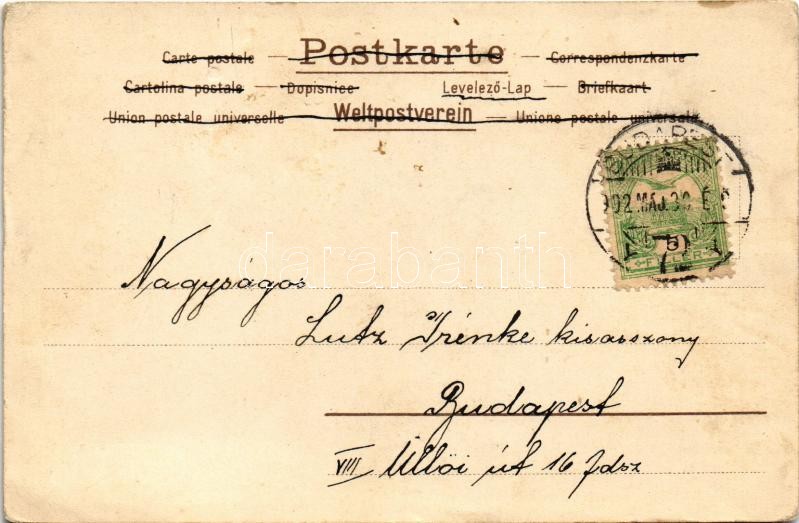 Carte postale — Postkarte — Correspondenzkarte
Cartolina postale — Dopisnice Levelező-Lap — Briefkaart
Union postale universelle — Weltpostverein — Unione postale universale
BUDAPEST
902 MÁJ. 30
5
FILLÉR
darabanth
Nagyságos
Lutz Irénke kisasszony
Budapest
VIII Üllői út 16 fdsz